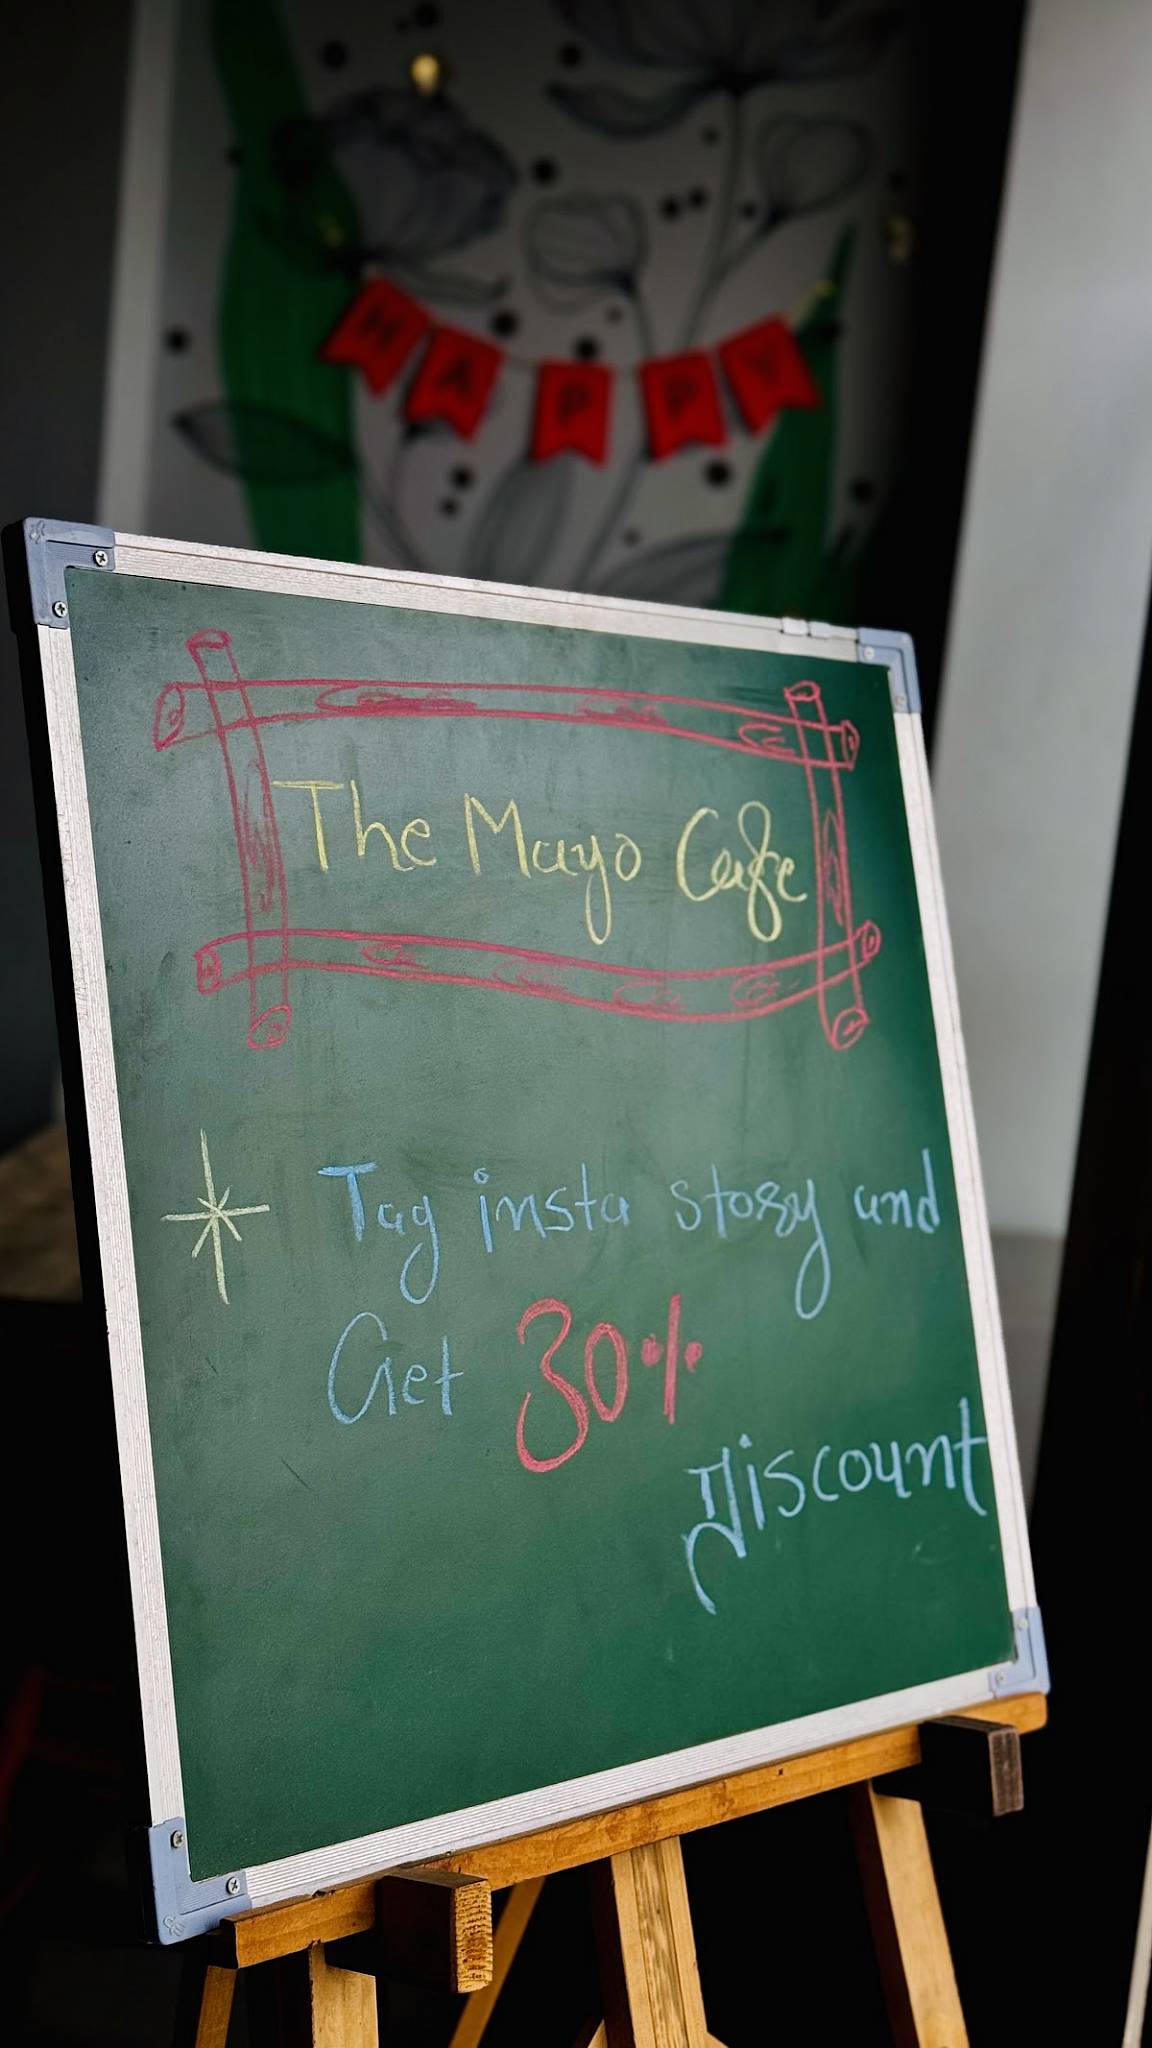 HAPPY
The Mayo Cafe
Tag insta story and
Get 30%
Discount